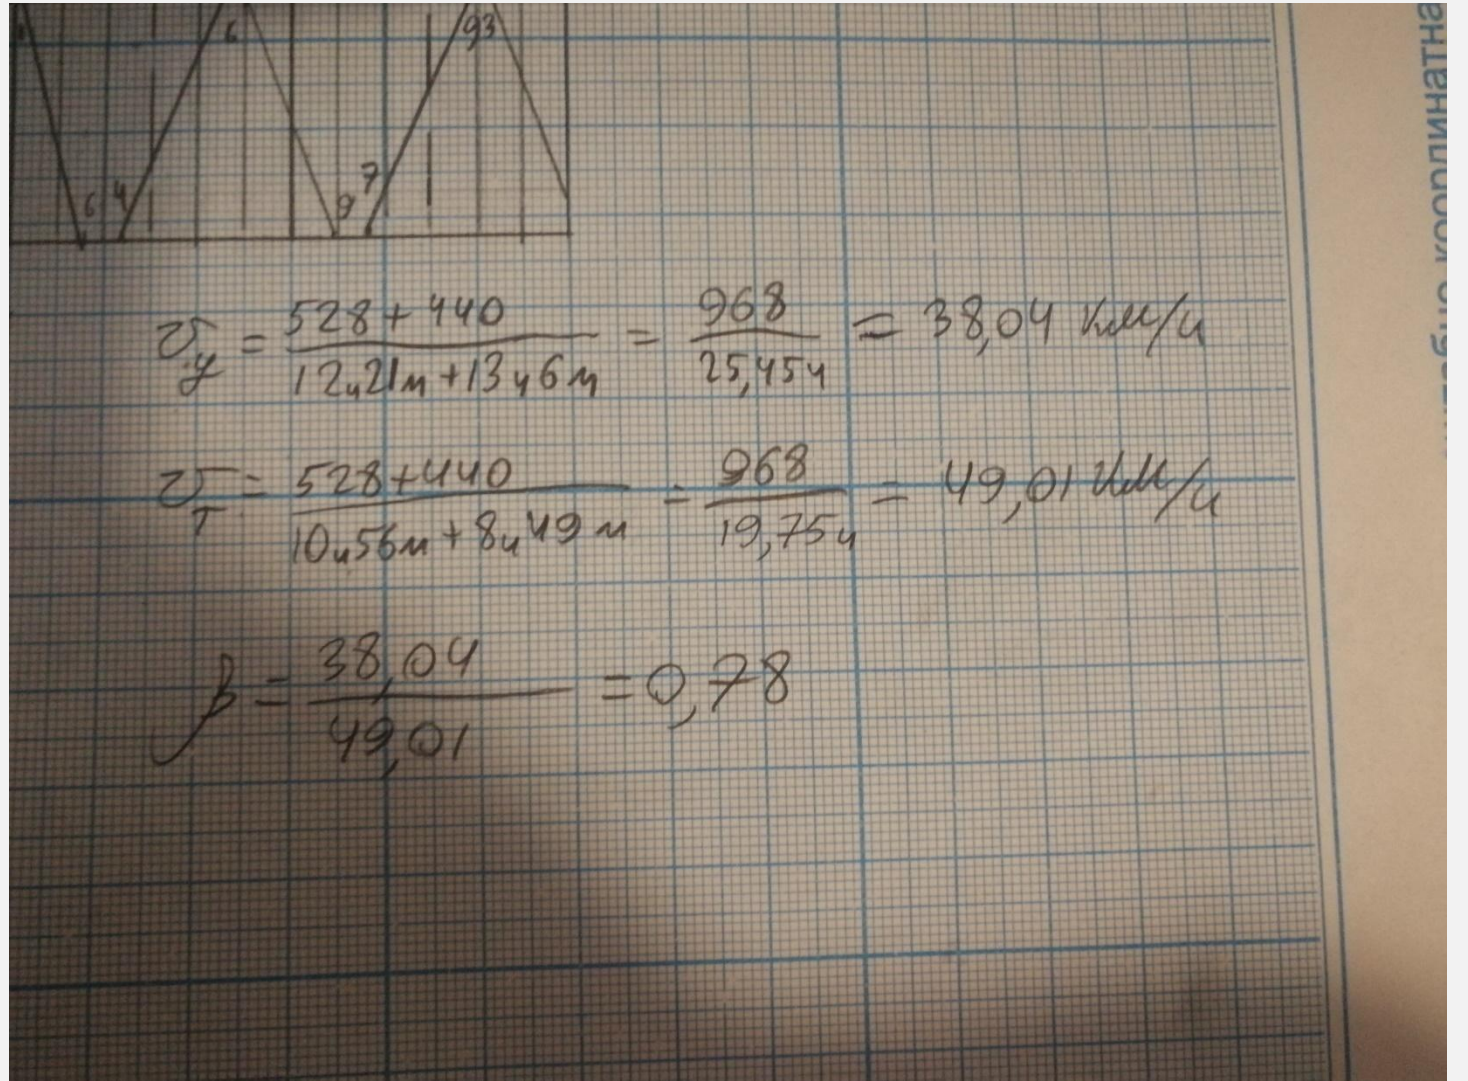 6 93
6 4 9 7
v_у = (528+440)/(12ч21м+13ч6м) = 968/25,45ч = 38,04 км/ч
v_т = (528+440)/(10ч56м+8ч49м) = 968/19,75ч = 49,01 км/ч
β = 38,04/49,01 = 0,78
координатна